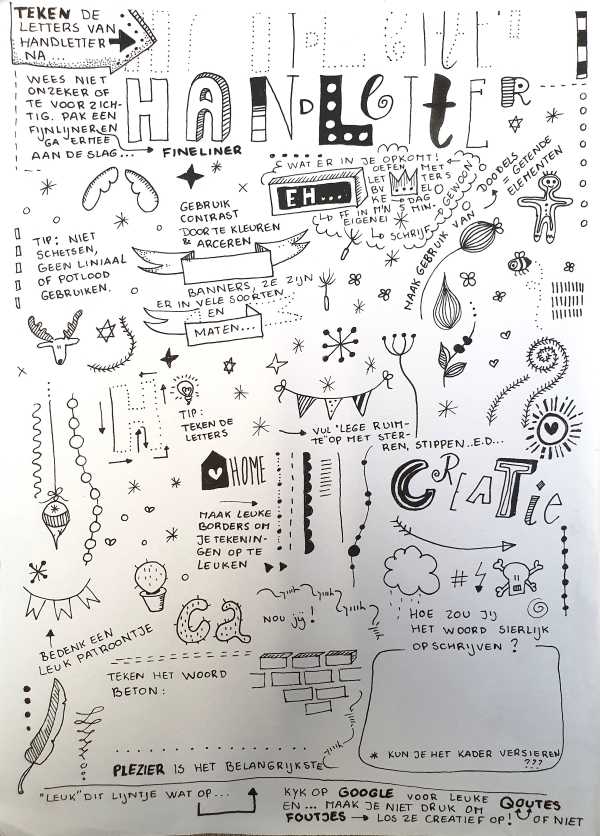 TEKEN DE
LETTERS VAN
HANDLETTER
NA
HANDLETTER
WEES NIET
ONZEKER OF
TE VOORZICH-
TIG. PAK EEN
FIJNLIJNER EN
GA ERMEE
AAN DE SLAG...
FINELINER
WAT ER IN JE OPKOMT!
EH...
OEFEN MET
LETTERS
BV
KE
DAG
FF IN M'N 5 MIN.
EIGENE!
SCHRIJF
GEWOON
GEBRUIK
CONTRAST
DOOR TE KLEUREN
& ARCEREN
MAAK GEBRUIK VAN DOODELS
& GETENDE
ELEMENTEN
TIP: NIET
SCHETSEN,
GEEN LINIAAL
OF POTLOOD
GEBRUIKEN.
BANNERS, ZE ZIJN
ER IN VELE SOORTEN...
EN
MATEN...
H
TIP:
TEKEN DE
LETTERS
VUL "LEGE RUIM-
TE" OP MET STER-
REN, STIPPEN..E.D...
HOME
CREATIE
MAAK LEUKE
BORDERS OM
JE TEKENIN-
GEN OP TE
LEUKEN
#
Ca
NOU JIJ!
HOE ZOU JIJ
HET WOORD SIERLIJK
OPSCHRIJVEN?
BEDENK EEN
LEUK PATROONTJE
TEKEN HET WOORD
BETON:
* KUN JE HET KADER VERSIEREN
???
PLEZIER IS HET BELANGRIJKSTE
"LEUK" DIT LIJNTJE WAT OP...
KYK OP GOOGLE VOOR LEUKE QOUTES
EN... MAAK JE NIET DRUK OM
FOUTJES → LOS ZE CREATIEF OP! OF NIET